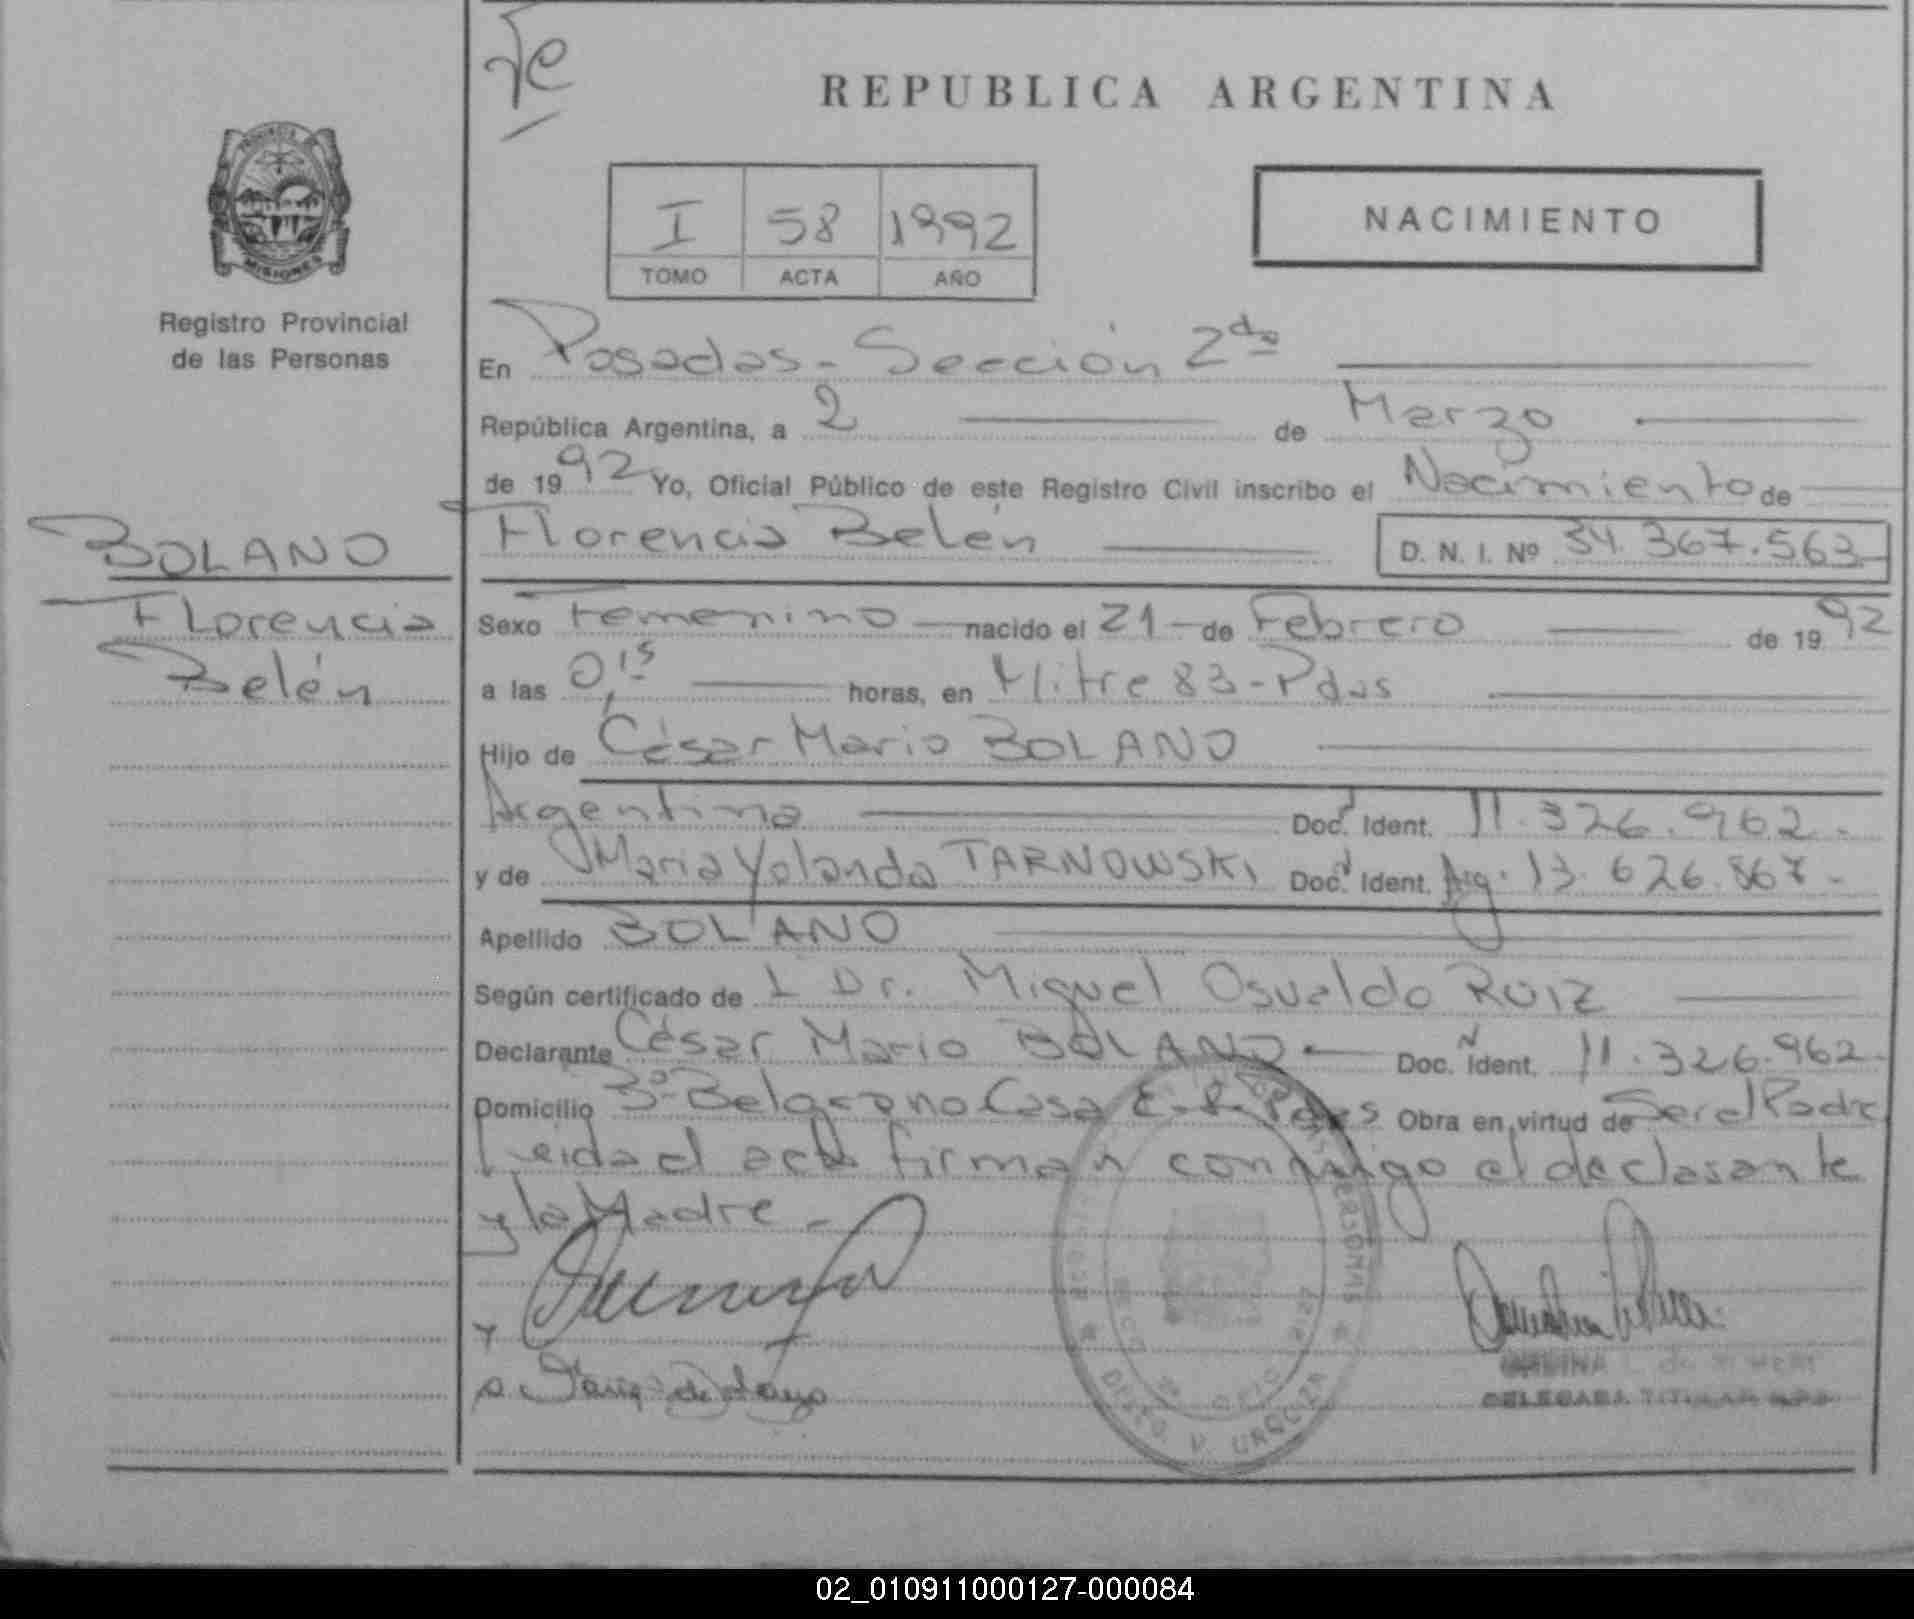 REPUBLICA ARGENTINA
PROVINCIA DE
MISIONES
Registro Provincial
de las Personas
I 58 1992
TOMO ACTA AÑO
NACIMIENTO
En Posadas - Sección 2da
República Argentina, a 2 de Marzo
de 1992 Yo, Oficial Público de este Registro Civil inscribo el Nacimiento de
BOLANO
Florencia Belén D. N. I. Nº 34.367.563
Florencia
Belén
Sexo Femenino nacido el 21 de Febrero de 1992
a las 0,15 horas, en Mitre 83 - Pdas
Hijo de César Mario BOLANO
Argentina Doc. Ident. 11.326.962.
y de Maria Yolanda TARNOWSKI Doc. Ident. Arg. 13.626.867.
Apellido BOLANO
Según certificado de l Dr. Miguel Osvaldo RUIZ
Declarante César Mario BOLANO Doc. Ident. 11.326.962
Domicilio Bº Belgrano Casa Pdas Obra en virtud de Ser el Padre
Leida el acta firman conmigo el declarante
y la Madre.
PERSONAS
DPTO. V. URQUIZA
DELEGADA TITULAR
02_010911000127-000084